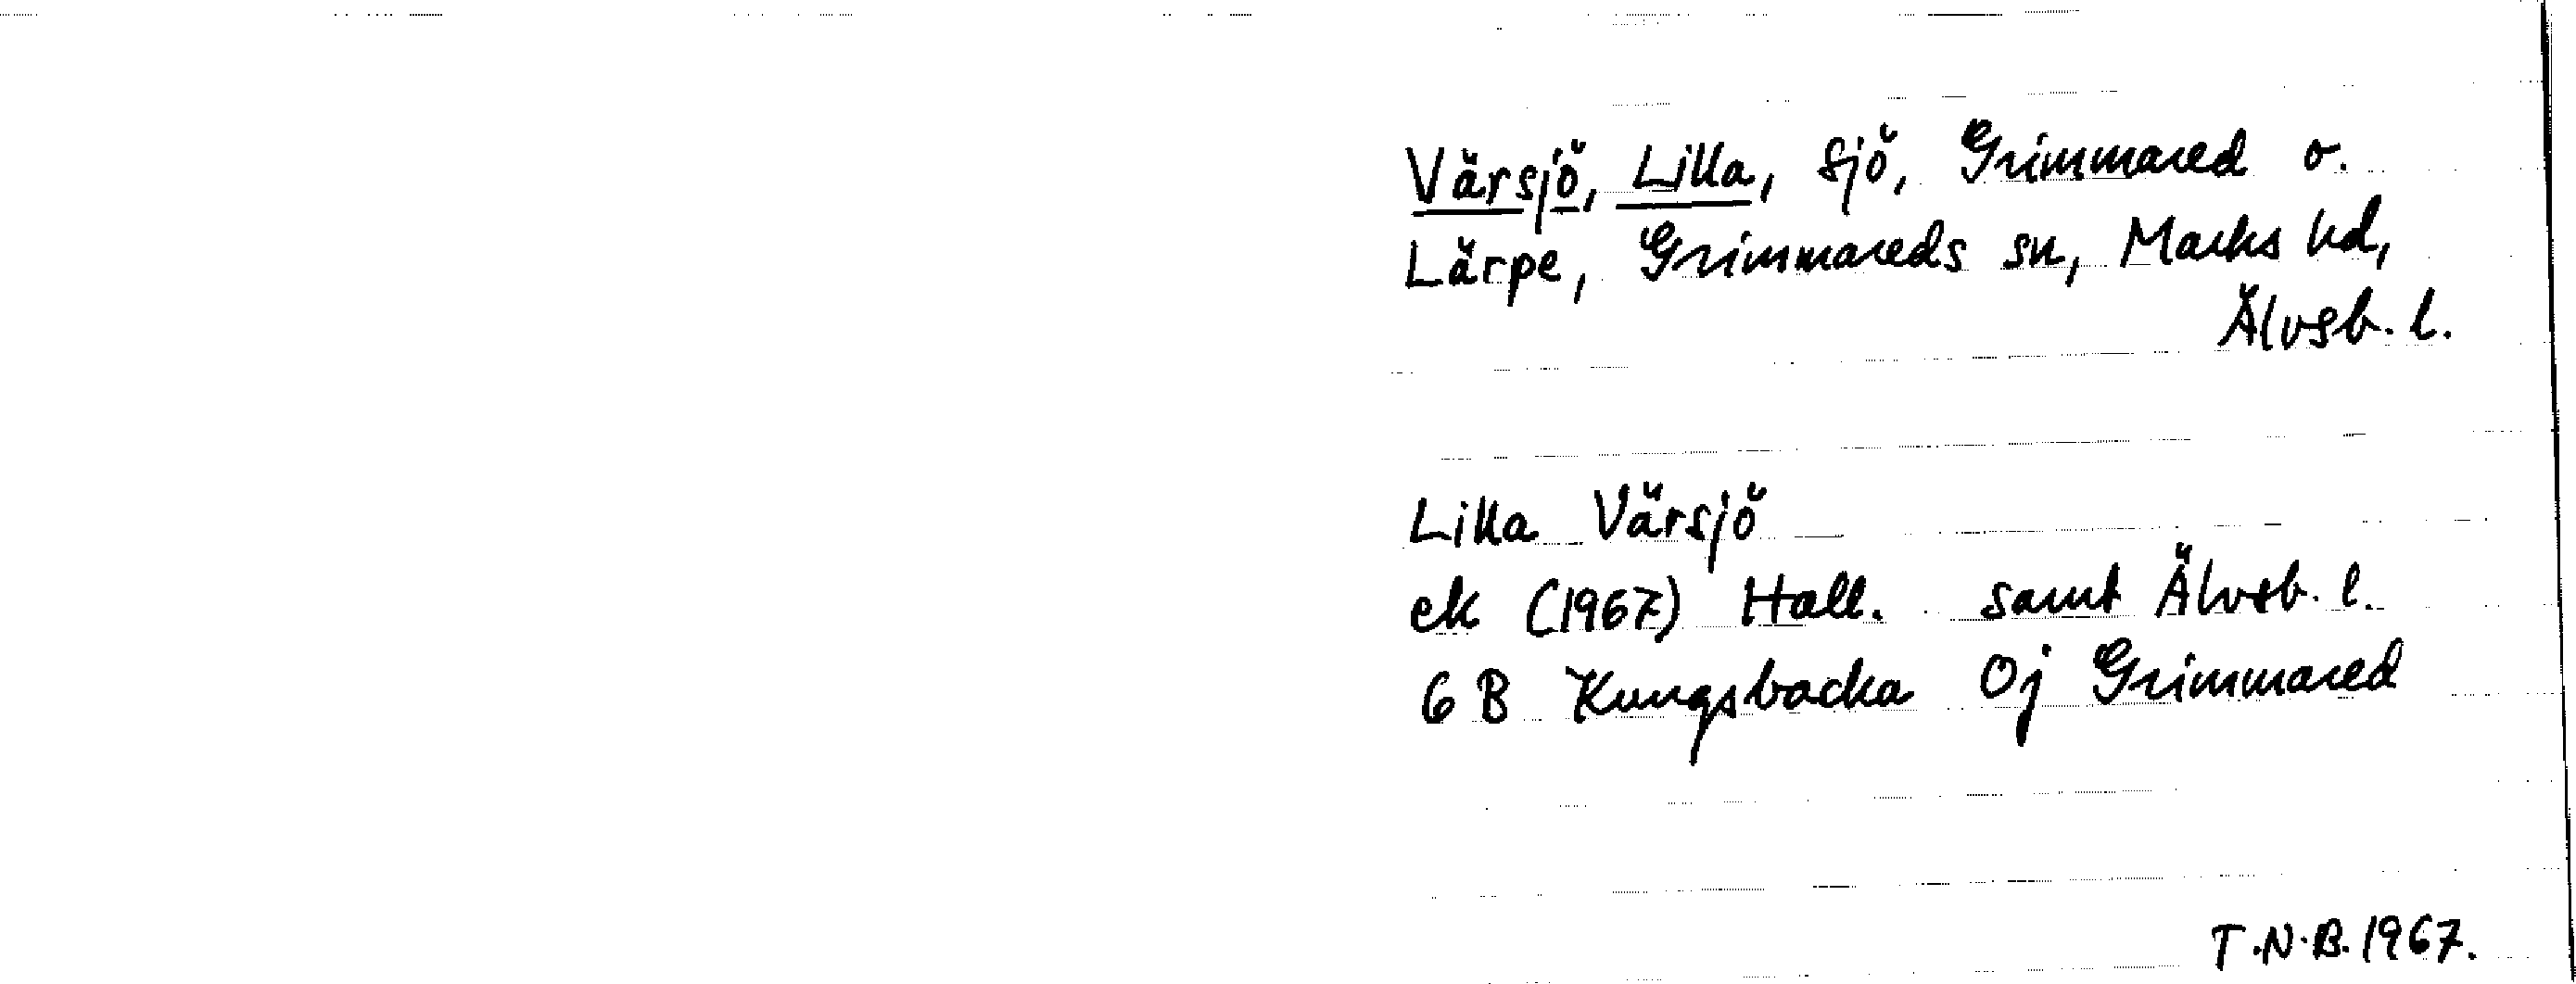 Värsjö, Lilla, sjö, Grimmared o.
Lärpe, Grimmareds sn, Marks hd,
Älvsb. l.
Lilla Värsjö
ek (1967) Hall. samt Älvsb. l.
6 B Kungsbacka 0j Grimmared
T.N.B. 1967.